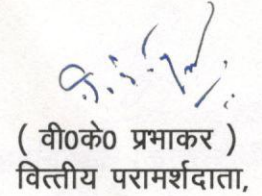 ( वी0के0 प्रभाकर )
वित्तीय परामर्शदाता,